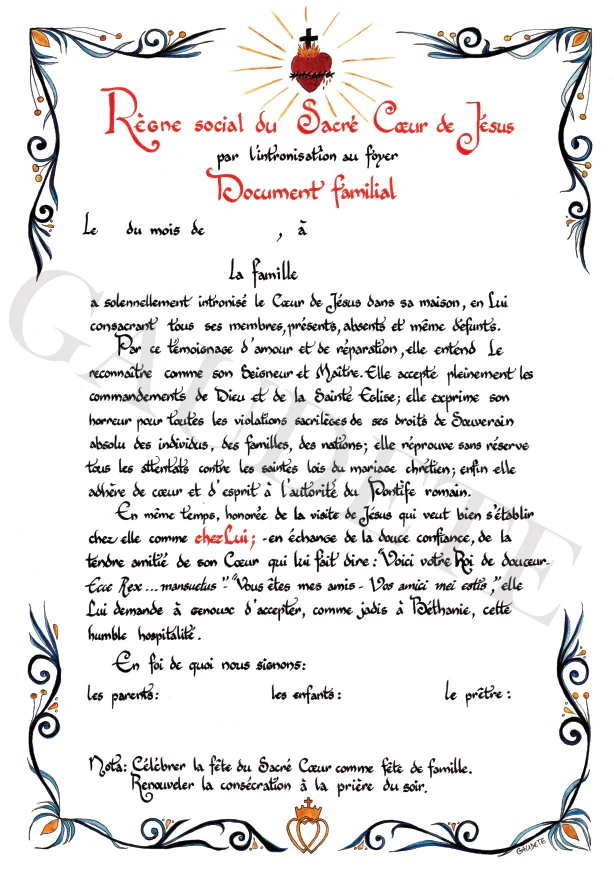 Règne social du Sacré Cœur de Jésus
par l'intronisation au foyer
Document familial
Le du mois de , à
La famille
a solennellement intronisé le Cœur de Jésus dans sa maison, en Lui
consacrant tous ses membres, présents, absents et même défunts.
Par ce témoignage d'amour et de réparation, elle entend Le
reconnaître comme son Seigneur et Maître. Elle accepte pleinement les
commandements de Dieu et de la Sainte Eglise ; elle exprime son
horreur pour toutes les violations sacrilèges de ses droits de Souverain
absolu des individus, des familles, des nations ; elle réprouve sans réserve
tous les attentats contre les saintes lois du mariage chrétien ; enfin elle
adhère de cœur et d'esprit à l'autorité du Pontife romain.
En même temps, honorée de la visite de Jésus qui veut bien s'établir
chez elle comme chez Lui ; - en échange de la douce confiance, de la
tendre amitié de son Cœur qui lui fait dire : "Voici votre Roi de douceur-
Ecce Rex ... mansuetus"- "Vous êtes mes amis - Vos amici mei estis," elle
Lui demande à genoux d'accepter, comme jadis à Béthanie, cette
humble hospitalité.
En foi de quoi nous signons :
les parents : les enfants : le prêtre :
Nota : Célébrer la fête du Sacré Cœur comme fête de famille.
Renouveler la consécration à la prière du soir.
GAUDETE
GAUDETE